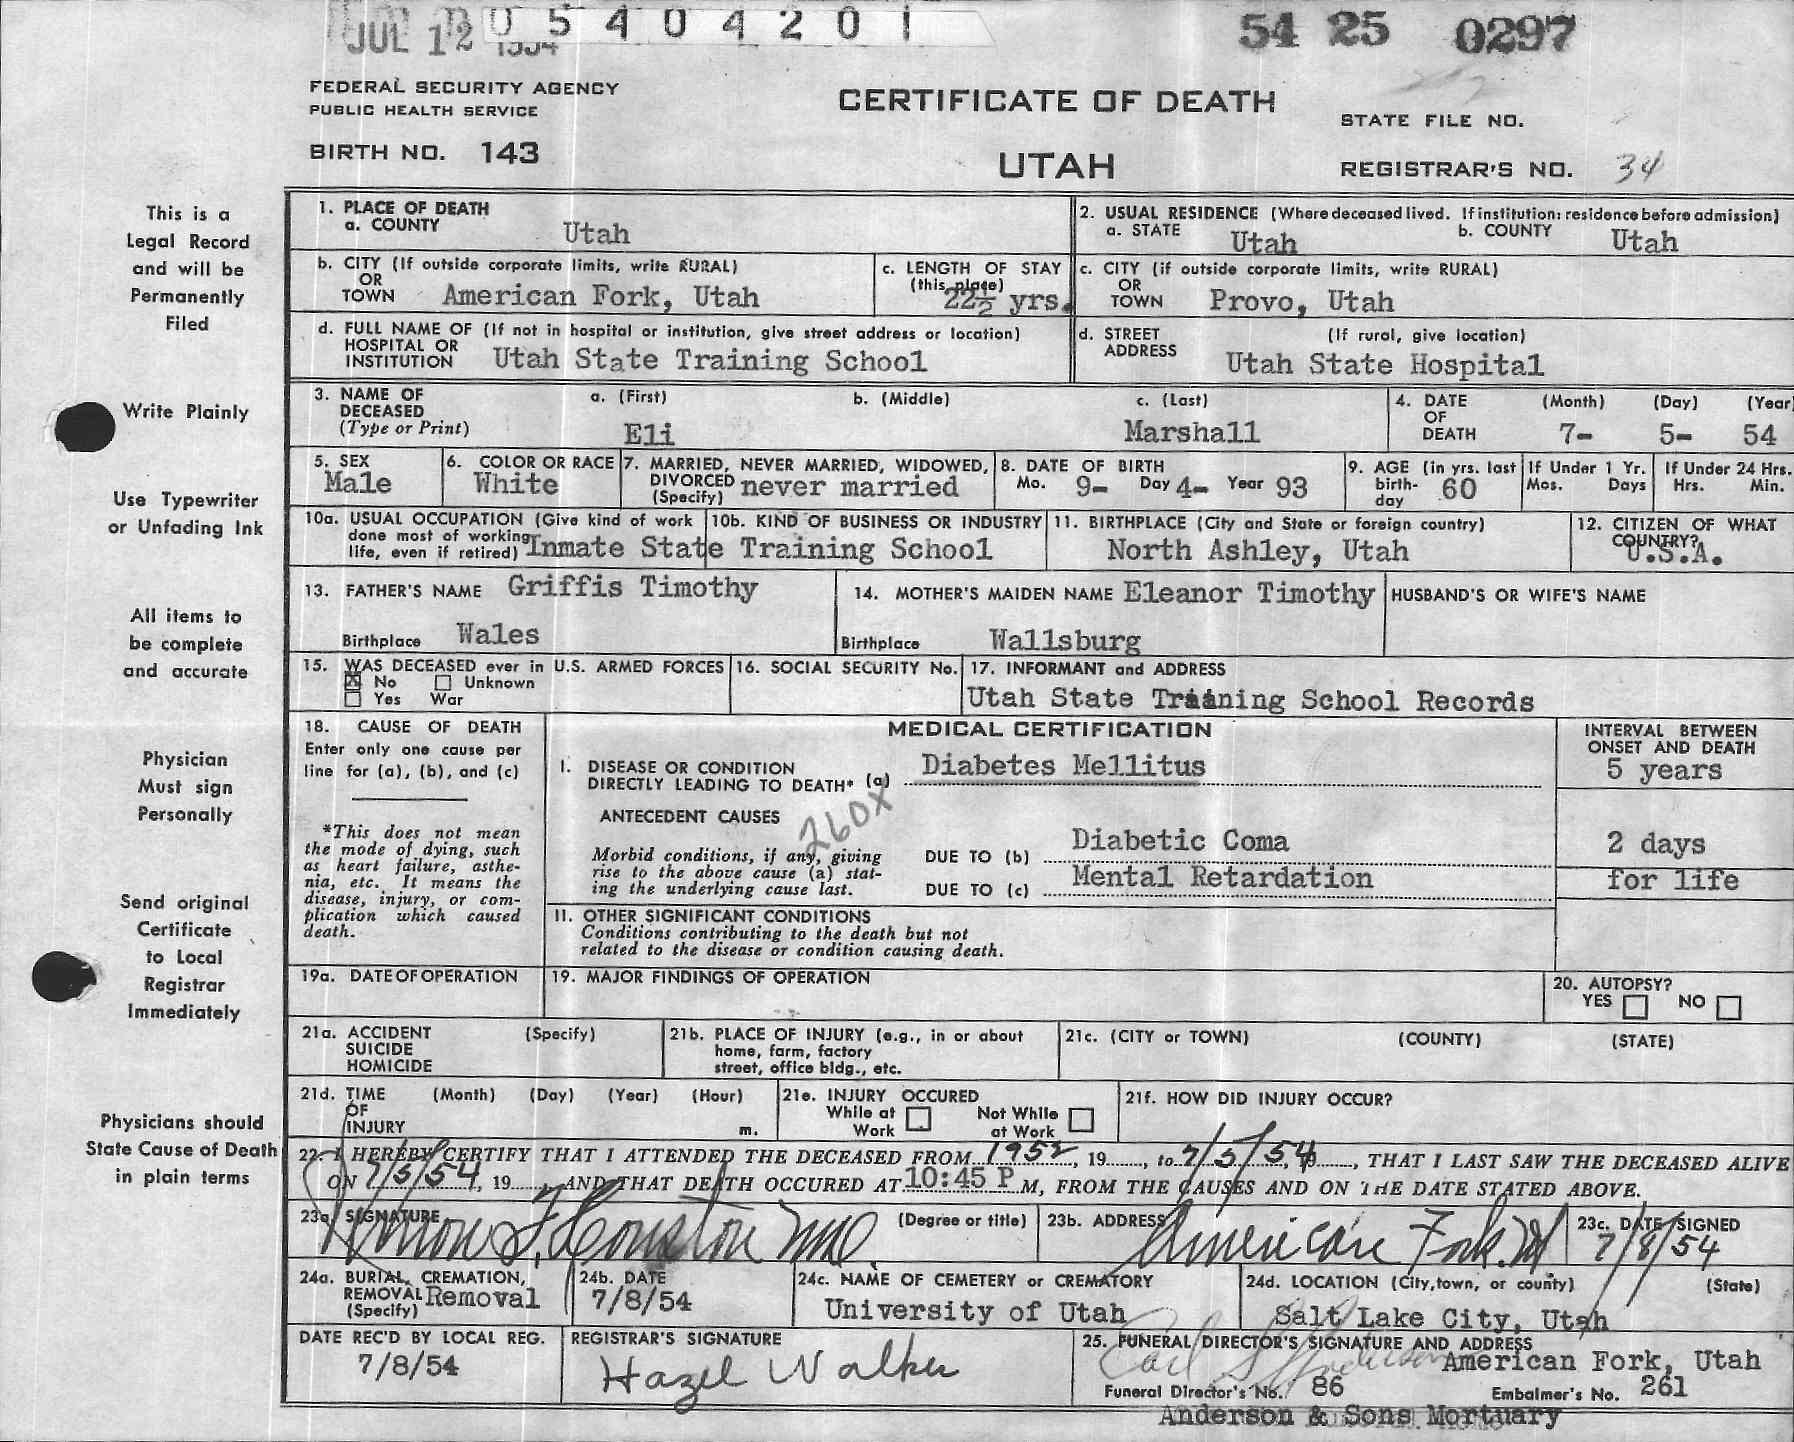 JUL 12 1954 0 5 4 0 4 2 0 1 54 25 0297
FEDERAL SECURITY AGENCY
PUBLIC HEALTH SERVICE
BIRTH NO. 143
CERTIFICATE OF DEATH
UTAH
STATE FILE NO.
REGISTRAR'S NO. 34
This is a
Legal Record
and will be
Permanently
Filed
Write Plainly
Use Typewriter
or Unfading Ink
All items to
be complete
and accurate
Physician
Must sign
Personally
Send original
Certificate
to Local
Registrar
Immediately
Physicians should
State Cause of Death
in plain terms
1. PLACE OF DEATH
a. COUNTY Utah
2. USUAL RESIDENCE (Where deceased lived. If institution: residence before admission)
a. STATE Utah b. COUNTY Utah
b. CITY (If outside corporate limits, write RURAL)
OR
TOWN American Fork, Utah
c. LENGTH OF STAY
(this place)
22½ yrs.
c. CITY (if outside corporate limits, write RURAL)
OR
TOWN Provo, Utah
d. FULL NAME OF (If not in hospital or institution, give street address or location)
HOSPITAL OR
INSTITUTION Utah State Training School
d. STREET (If rural, give location)
ADDRESS Utah State Hospital
3. NAME OF
DECEASED
(Type or Print)
a. (First) b. (Middle) c. (Last)
Eli Marshall
4. DATE
OF
DEATH
(Month) (Day) (Year
7- 5- 54
5. SEX
Male
6. COLOR OR RACE
White
7. MARRIED, NEVER MARRIED, WIDOWED,
DIVORCED
(Specify) never married
8. DATE OF BIRTH
Mo. 9- Day 4- Year 93
9. AGE (in yrs. last
birth-
day 60
If Under 1 Yr.
Mos. Days
If Under 24 Hrs.
Hrs. Min.
10a. USUAL OCCUPATION (Give kind of work
done most of working
life, even if retired) Inmate State Training School
10b. KIND OF BUSINESS OR INDUSTRY
11. BIRTHPLACE (City and State or foreign country)
North Ashley, Utah
12. CITIZEN OF WHAT
COUNTRY?
U.S.A.
13. FATHER'S NAME Griffis Timothy
Birthplace Wales
14. MOTHER'S MAIDEN NAME Eleanor Timothy
Birthplace Wallsburg
HUSBAND'S OR WIFE'S NAME
15. WAS DECEASED ever in U.S. ARMED FORCES
☒ No ☐ Unknown
☐ Yes War
16. SOCIAL SECURITY No.
17. INFORMANT and ADDRESS
Utah State Training School Records
18. CAUSE OF DEATH
Enter only one cause per
line for (a), (b), and (c)
*This does not mean
the mode of dying, such
as heart failure, asthe-
nia, etc. It means the
disease, injury, or com-
plication which caused
death.
MEDICAL CERTIFICATION
I. DISEASE OR CONDITION
DIRECTLY LEADING TO DEATH* (a) Diabetes Mellitus
ANTECEDENT CAUSES
260X
Morbid conditions, if any, giving
rise to the above cause (a) stat-
ing the underlying cause last.
DUE TO (b) Diabetic Coma
DUE TO (c) Mental Retardation
INTERVAL BETWEEN
ONSET AND DEATH
5 years
2 days
for life
II. OTHER SIGNIFICANT CONDITIONS
Conditions contributing to the death but not
related to the disease or condition causing death.
19a. DATE OF OPERATION
19. MAJOR FINDINGS OF OPERATION
20. AUTOPSY?
YES ☐ NO ☐
21a. ACCIDENT (Specify)
SUICIDE
HOMICIDE
21b. PLACE OF INJURY (e.g., in or about
home, farm, factory
street, office bldg., etc.
21c. (CITY or TOWN) (COUNTY) (STATE)
21d. TIME (Month) (Day) (Year) (Hour)
OF
INJURY m.
21e. INJURY OCCURED
While at ☐ Not While ☐
Work at Work
21f. HOW DID INJURY OCCUR?
22. I HEREBY CERTIFY THAT I ATTENDED THE DECEASED FROM 1952, 19......, to 7/5/54, 19......, THAT I LAST SAW THE DECEASED ALIVE
ON 7/5/54, 19......, AND THAT DEATH OCCURED AT 10:45 P M, FROM THE CAUSES AND ON THE DATE STATED ABOVE.
23a. SIGNATURE (Degree or title)
Houston MD
23b. ADDRESS
American Fork
23c. DATE SIGNED
7/8/54
24a. BURIAL, CREMATION,
REMOVAL
(Specify) Removal
24b. DATE
7/8/54
24c. NAME OF CEMETERY or CREMATORY
University of Utah
24d. LOCATION (City, town, or county) (State)
Salt Lake City, Utah
DATE REC'D BY LOCAL REG.
7/8/54
REGISTRAR'S SIGNATURE
Hazel Walker
25. FUNERAL DIRECTOR'S SIGNATURE AND ADDRESS
Anderson American Fork, Utah
Funeral Director's No. 86 Embalmer's No. 261
Anderson & Sons Mortuary